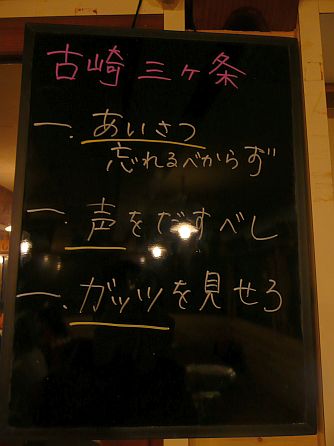 古崎三ヶ条
一.あいさつ
忘れるべからず
一.声をだすべし
一.ガッツを見せろ